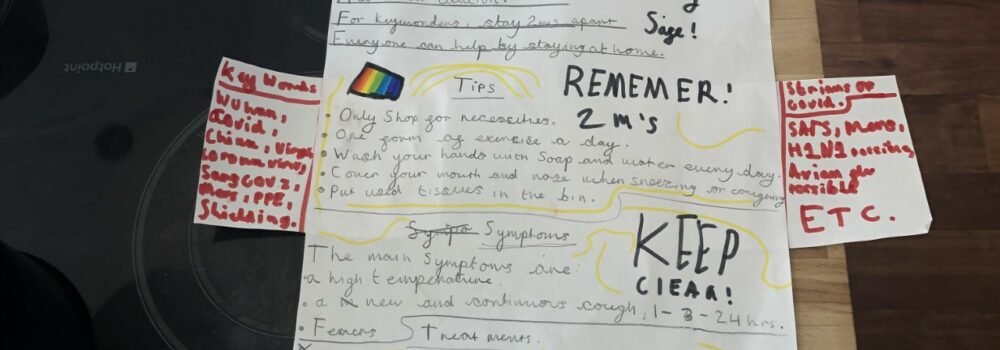 For keyworkers, stay 2m's apart
Everyone can help by staying at home.
Sage!
Tips
REMEMER!
2 m's
• Only Shop for necessities.
• One form of exercise a day.
• Wash your hands with Soap and water every day.
• Cover your mouth and nose when sneezing or coughing
• Put used tissues in the bin.
Symptoms
KEEP
Clear!
The main Symptoms are:
• a high temperature.
• a new and continuous cough, 1-3-24 hrs.
• Femers
Treatments.
Key Words
Wuhan,
Covid,
China, Virus,
Corona virus,
Sarscov2,
Mers, PPE,
Shielding.
Covid.
SARS, Mers,
H1N1 possible,
Avian flu
possible
ETC.
Hotpoint